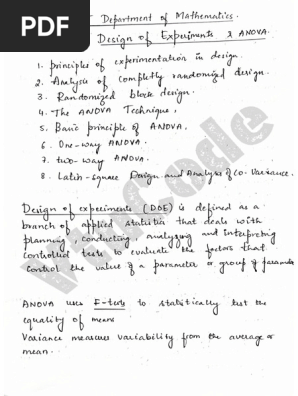 PDF
Department of Mathematics.
Design of Experiments & ANOVA.
1. principles of experimentation in design.
2. Analysis of completly randomized design.
3. Randomized block design.
4. The ANOVA Technique,
5. Basic principle of ANOVA.
6. One-way ANOVA.
7. two-way ANOVA.
8. Latin-square Design and Analysis of co-Variance.
Design of experiments (DOE) is defined as a
branch of applied statistics that deals with
planning, conducting, analyzing and interpreting
controlled tests to evaluate the factors that
control the value of a parameter or group of parameters
ANOVA uses F-tests to statistically test the
equality of means
Variance measures variability from the average or
mean.